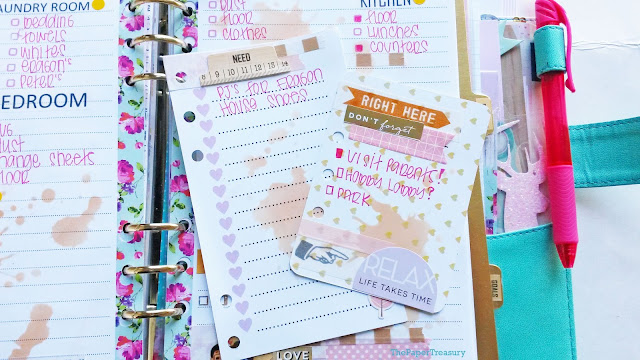 AUNDRY ROOM
bedding
towels
whites
eragon's
peter's
EDROOM
dust
hange sheets
floor
dust
floor
clothes
KITCHEN
floor
lunches
counters
NEED
8 9 10 11 12 13 14
PJ's for Eragon
House shoes
RIGHT HERE
DON'T forget
visit parents!
Hobby Lobby?
park
RELAX
LIFE TAKES TIME
GOALS
LOVE
ThePaperTreasury